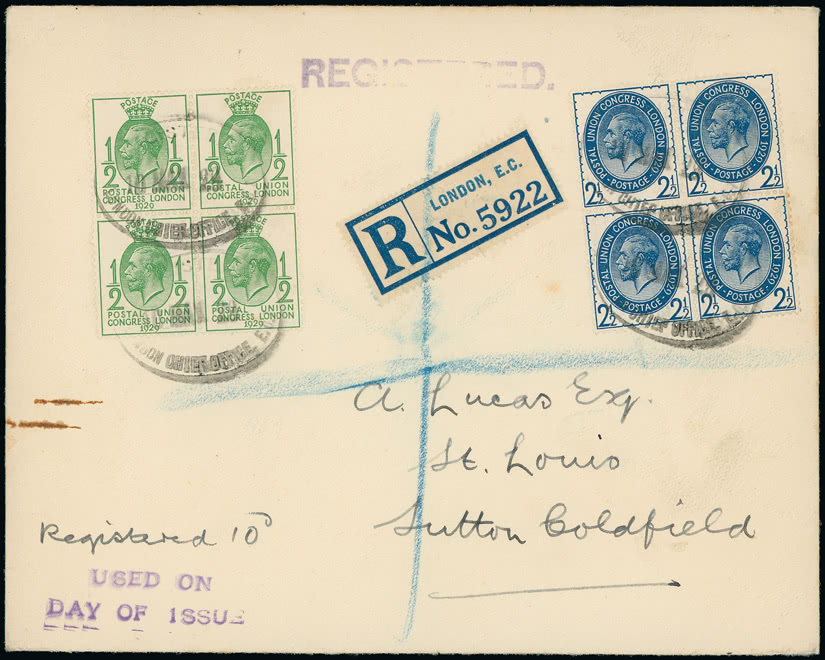 REGISTERED.
POSTAGE
1/2 1/2
POSTAL UNION
CONGRESS LONDON
1929
POSTAGE
1/2 1/2
POSTAL UNION
CONGRESS LONDON
1929
POSTAGE
1/2 1/2
POSTAL UNION
CONGRESS LONDON
1929
POSTAGE
1/2 1/2
POSTAL UNION
CONGRESS LONDON
1929
CHIEF OFFICE
CHIEF OFFICE, E.
R
LONDON, E.C.
No. 5922
POSTAL UNION CONGRESS LONDON 1929
POSTAGE
2½ 2½
POSTAL UNION CONGRESS LONDON 1929
POSTAGE
2½ 2½
POSTAL UNION CONGRESS LONDON 1929
POSTAGE
2½ 2½
POSTAL UNION CONGRESS LONDON 1929
POSTAGE
2½ 2½
CHIEF OFFICE
A. Lucas Esq.
St. Louis
Sutton Coldfield
Registered 10D
USED ON
DAY OF ISSUE